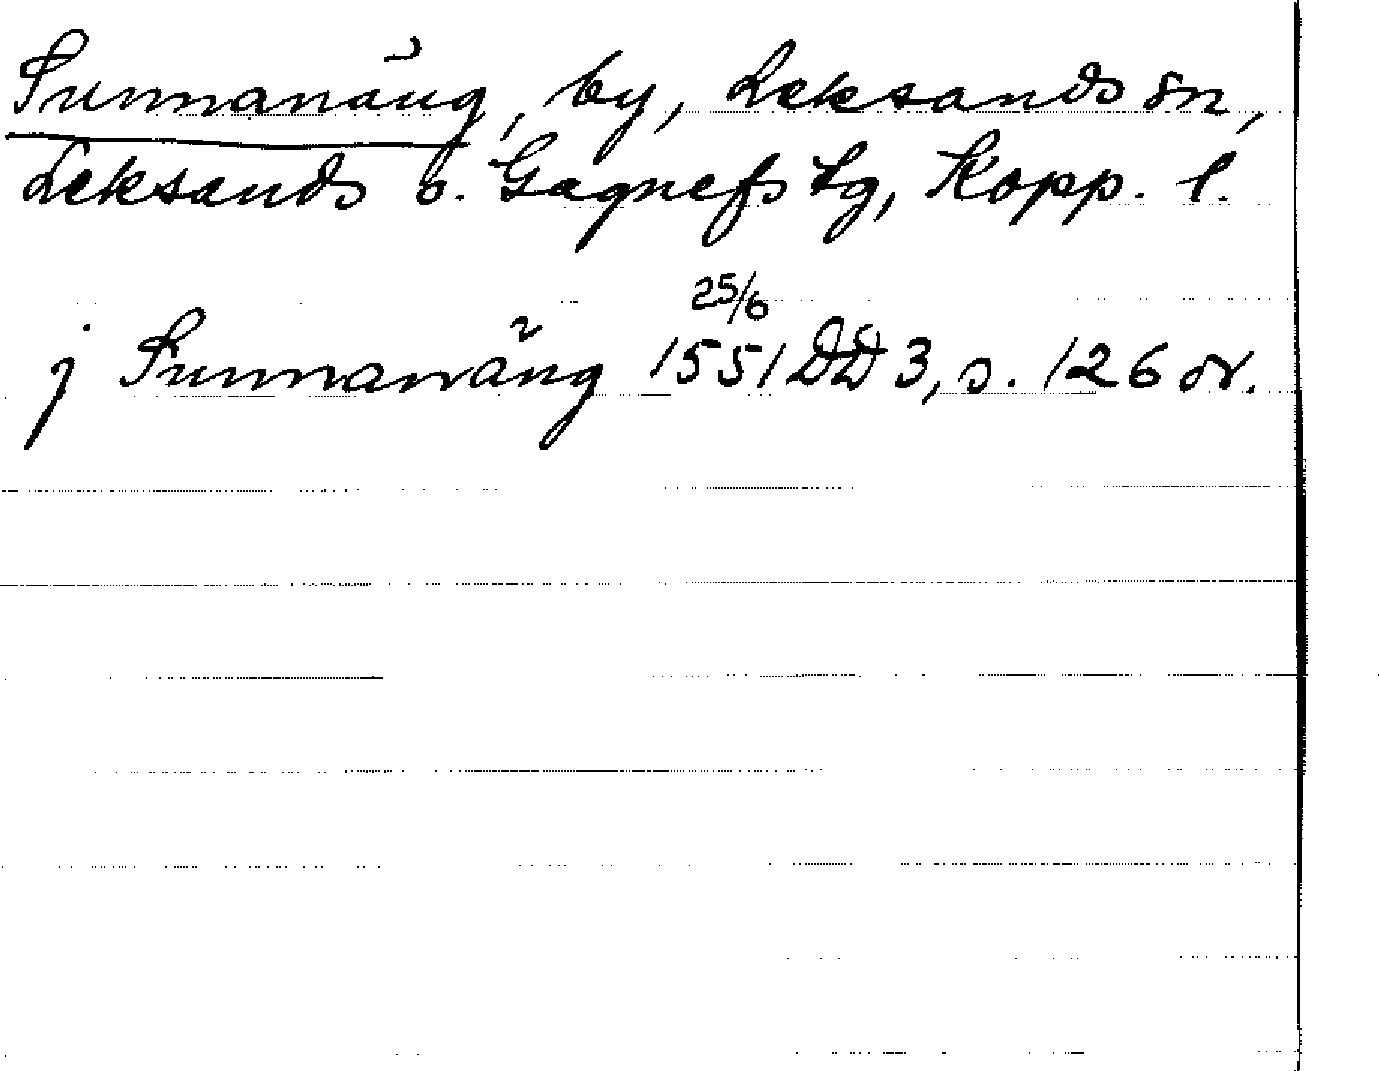 Sunnanäng, by, Leksands sn,
Leksands o. Gagnefs tg, Kopp. l.
25/6
j Sunnanäng 1551 DD 3, s. 126 or.